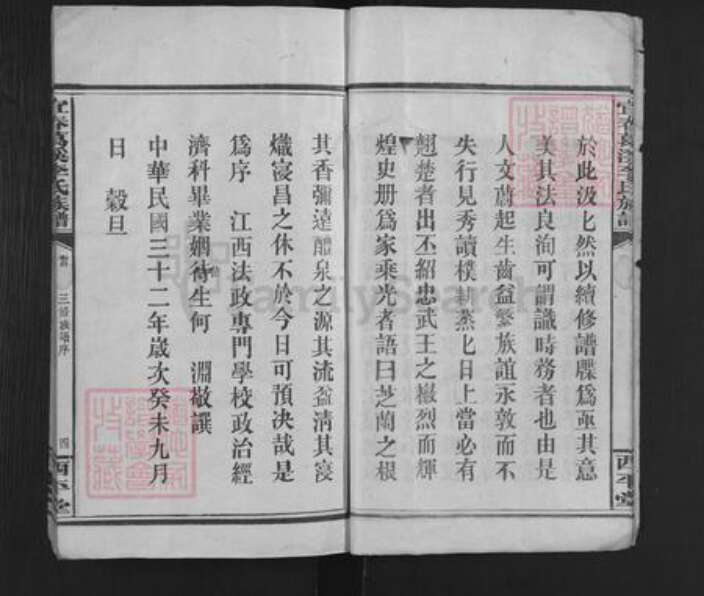 於此汲匕然以續修譜牒爲亟其意
美其法良洵可謂識時務者也由是
人文蔚起生齒益繁族誼永敦而不
失行見秀讀樸耕蒸匕日上當必有
翹楚者出丕紹忠武王之懋烈而輝
煌史册爲家乘光者語曰芝蘭之根
其香彌遠醴泉之源其流益清其寖
熾寖昌之休不於今日可預决哉是
爲序 江西法政專門學校政治經
濟科畢業姻待生何 淵敬譔
中華民國三十二年歲次癸未九月
日 穀旦
宜春葛溪李氏族譜
首
三修族譜序
四
西平堂
宜春葛溪李氏族譜
西平堂
FamilySearch